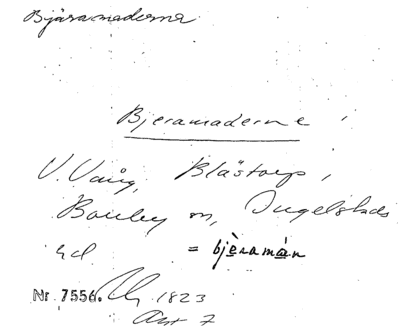 Bjäramaderna
Bjeramaderne
V. Vång, Blästorp,
Bouley m, Ingelstads
hd = bjèramàn
Nr 7556. 1823
Akt 7